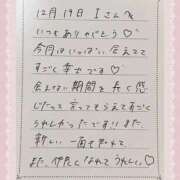 12月19日 Iさんへ
いつもありがとう♡
今月はいっぱい会えてて
すごく幸せです♡
会えない期間を長く感
じたって言ってもらえてすごく
うれしかったです!!また、
新しい一面も見れて
また、仲良くなれてうれしい♡